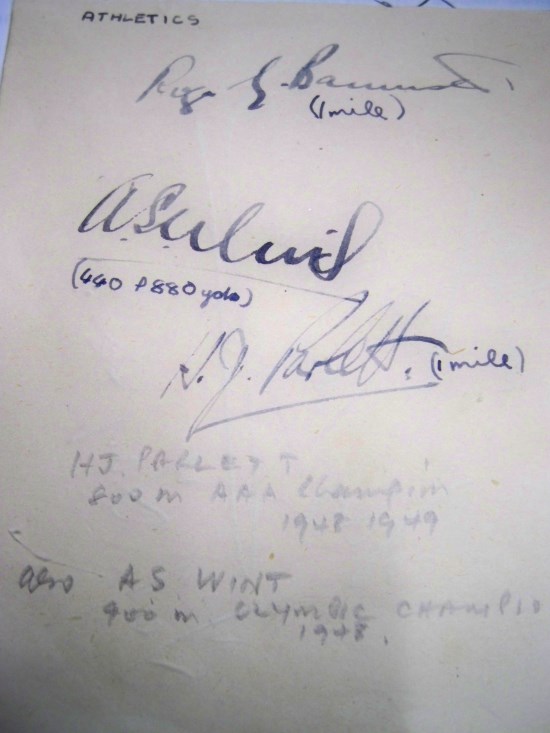 ATHLETICS
Roger G. Bannister
(1 mile)
A.S. Wint
(440 & 880 yds)
H.J. Parlett. (1 mile)
HJ. PARLETT
800 m AAA Champion
1948 1949
also AS WINT
400 m OLYMPIC CHAMPIO
1948.